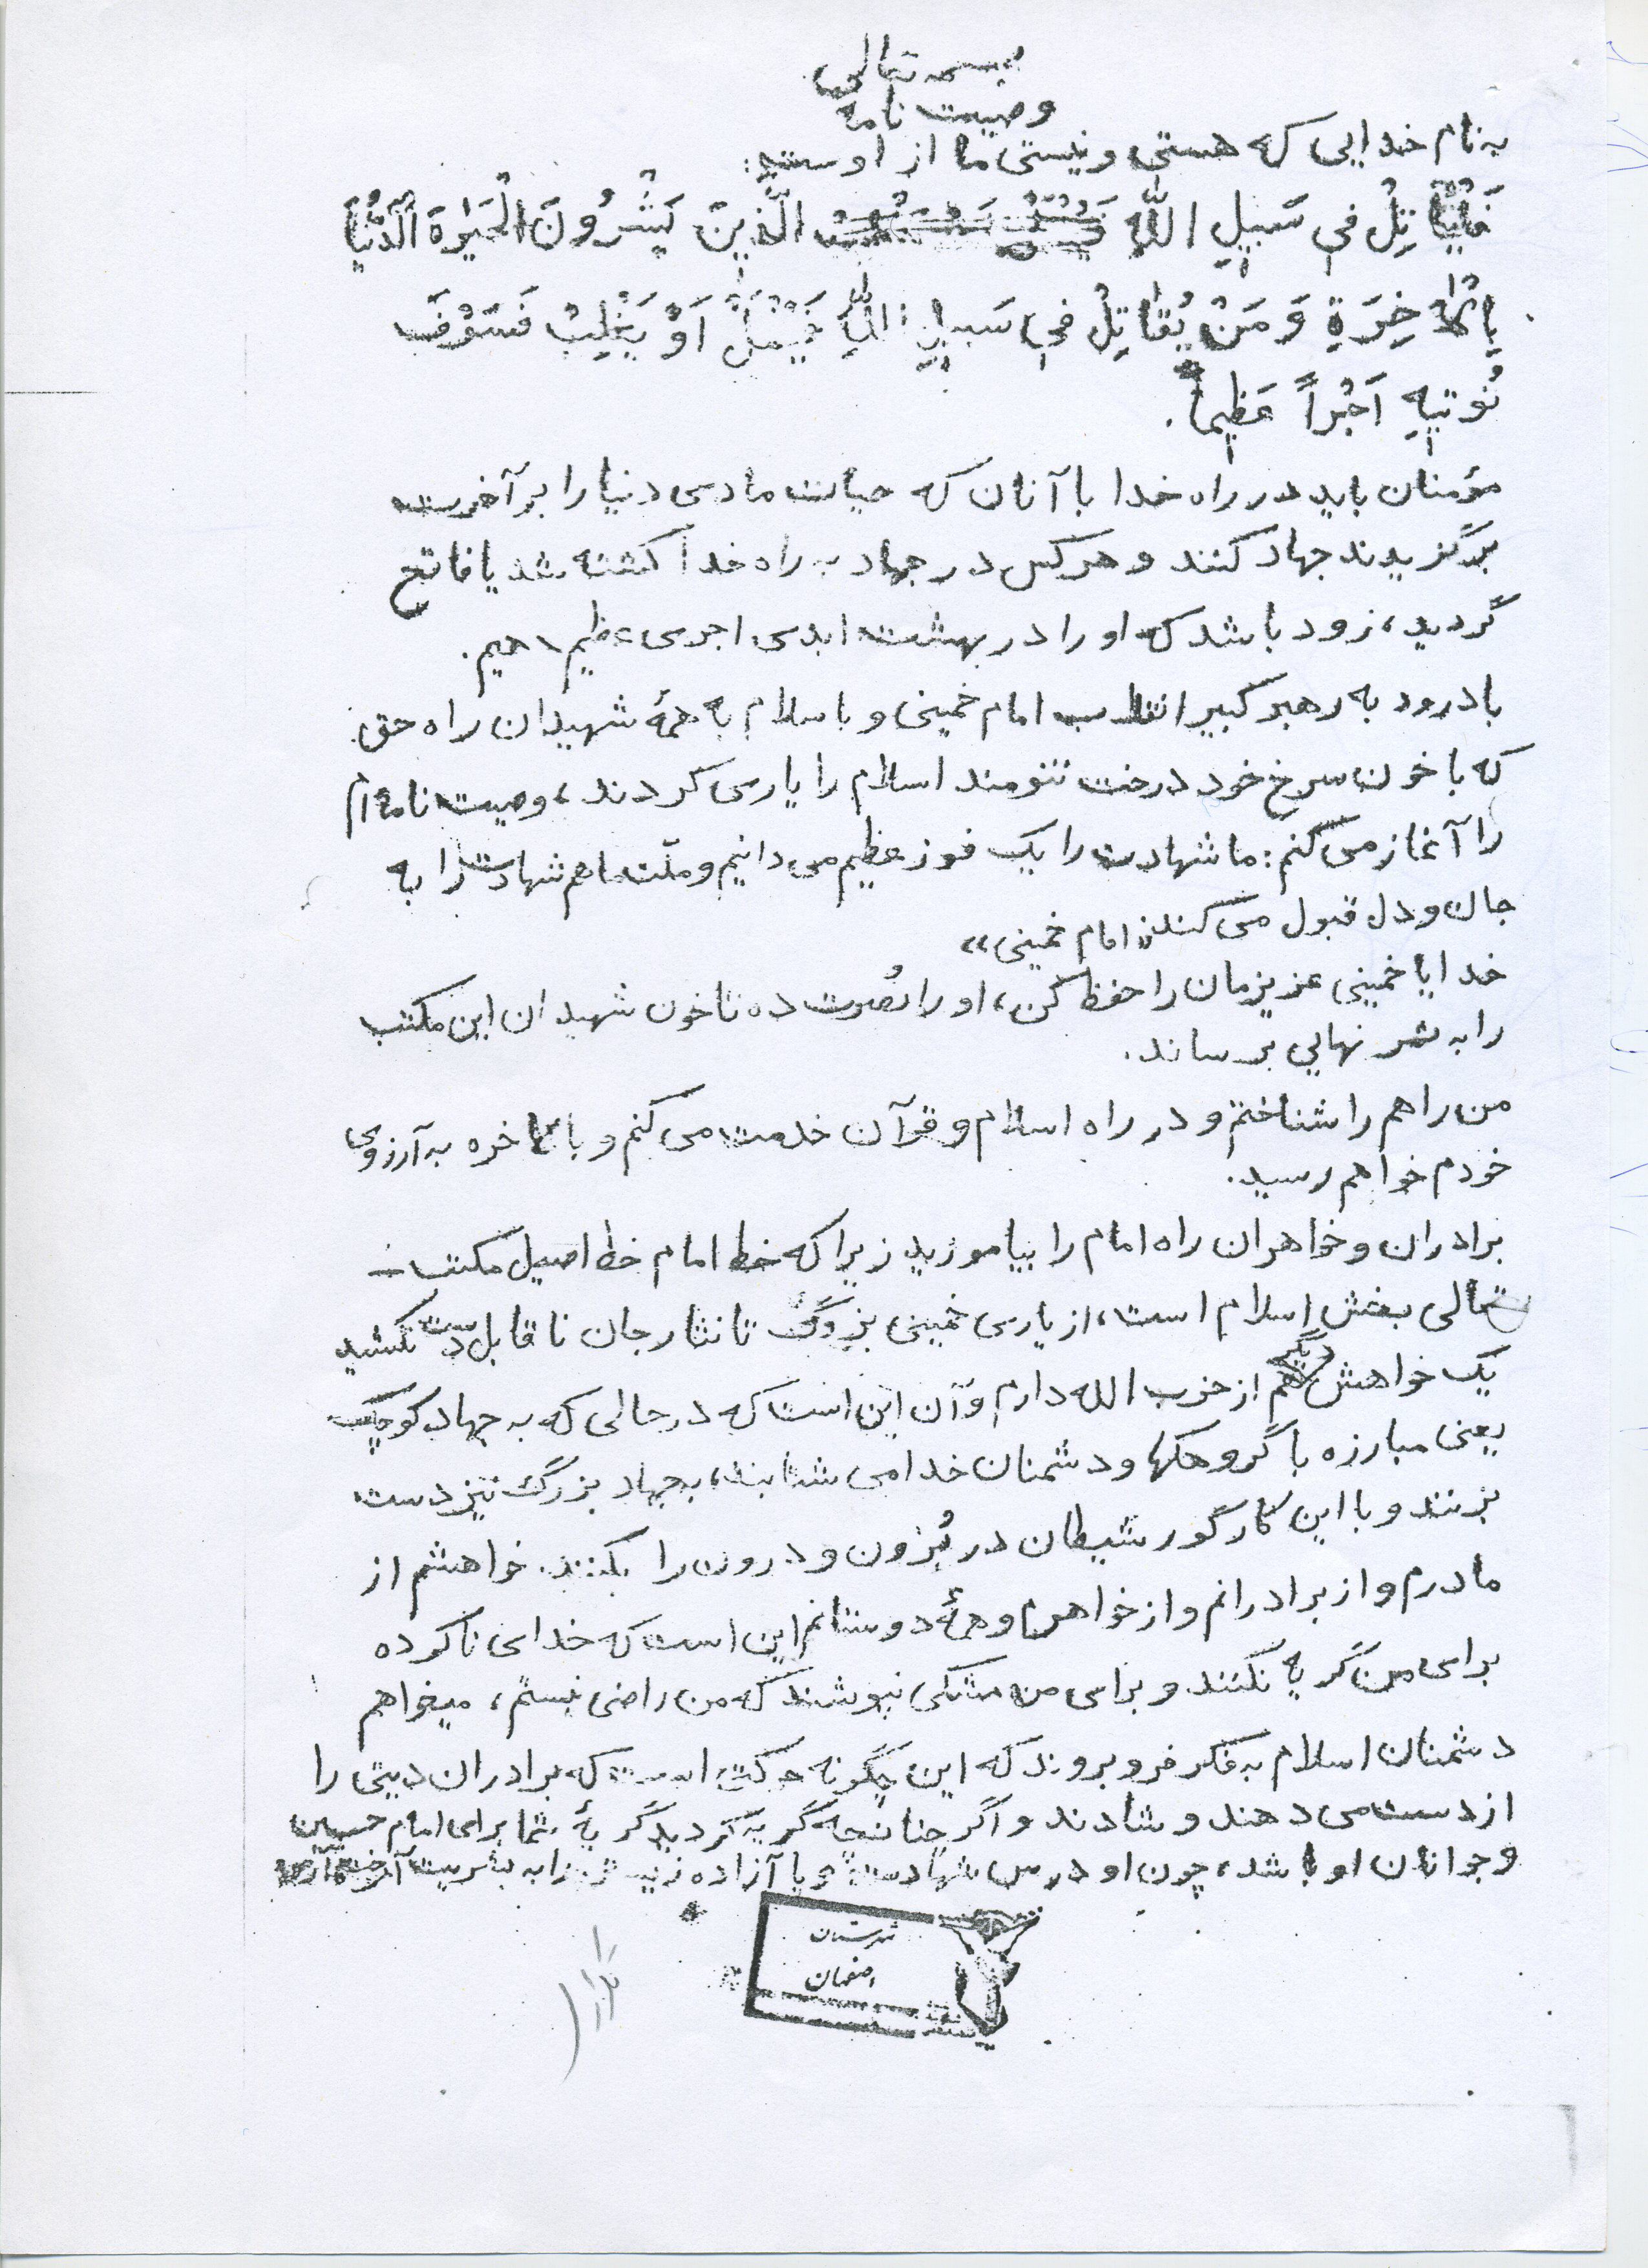 بسمه تعالی
وصیت نامه
به نام خدایی که هستی و نیستی ما از اوست:
فَلْیُقاتِلْ فی سَبیلِ اللهِ الَّذینَ یَشْرُونَ الْحَیٰوةَ الدُّنْیا
بِالْاٰخِرَةِ وَ مَنْ یُقاتِلْ فی سَبیلِ اللهِ فَیُقْتَلْ اَوْ یَغْلِبْ فَسَوْفَ
نُوْتیهِ اَجْراً عَظیماً.
مؤمنان باید در راه خدا با آنان که حیات مادی دنیا را بر آخرت
برگزیدند جهاد کنند و هر کس در جهاد به راه خدا کشته شد یا فاتح
گردید، زود باشد که او را در بهشت ابدی اجری عظیم دهیم.
با درود به رهبر کبیر انقلاب امام خمینی و با سلام به همهٔ شهیدان راه حق
که با خون سرخ خود درخت تنومند اسلام را یاری کردند، وصیت نامه ام
را آغاز می کنم: ما شهادت را یک فوز عظیم می دانیم و ملّت ما هم شهادت را به
جان و دل قبول می کند «امام خمینی»
خدایا خمینی عزیزمان را حفظ کن، او را نُصرت ده تا خون شهیدان این مکتب
را به ثمر نهایی برساند.
من راهم را شناختم و در راه اسلام و قرآن خدمت می کنم و بالاخره به آرزوی
خودم خواهم رسید.
برادران و خواهران راه امام را بیاموزید زیرا که خط امام خط اصیل مکتب
تعالی بخش اسلام است، از یاری خمینی بزرگ تا نثار جان ناقابل دست نکشید
یک خواهش دیگر هم از حزب الله دارم و آن این است که در حالی که به جهاد کوچک
یعنی مبارزه با گروهکها و دشمنان خدا می شتابند، به جهاد بزرگ نیز دست
بزنند و با این کار گور شیطان در بُرون و درون را بکنند. خواهشم از
مادرم و از برادرانم و از خواهرم و همهٔ دوستانم این است که خدای ناکرده
برای من گریه نکنند و برای من مشکی نپوشند که من راضی نیستم، میخواهم
دشمنان اسلام به فکر فرو بروند که این چگونه حرکتی است که برادران دینی را
از دست می دهند و شادند و اگر چنانچه گریه کردید گریهٔ شما برای امام حسین
و جوانان او باشد، چون او درس شهادت و یا آزاده زیستن را به بشریت آموخت
شهرستان
اصفهان